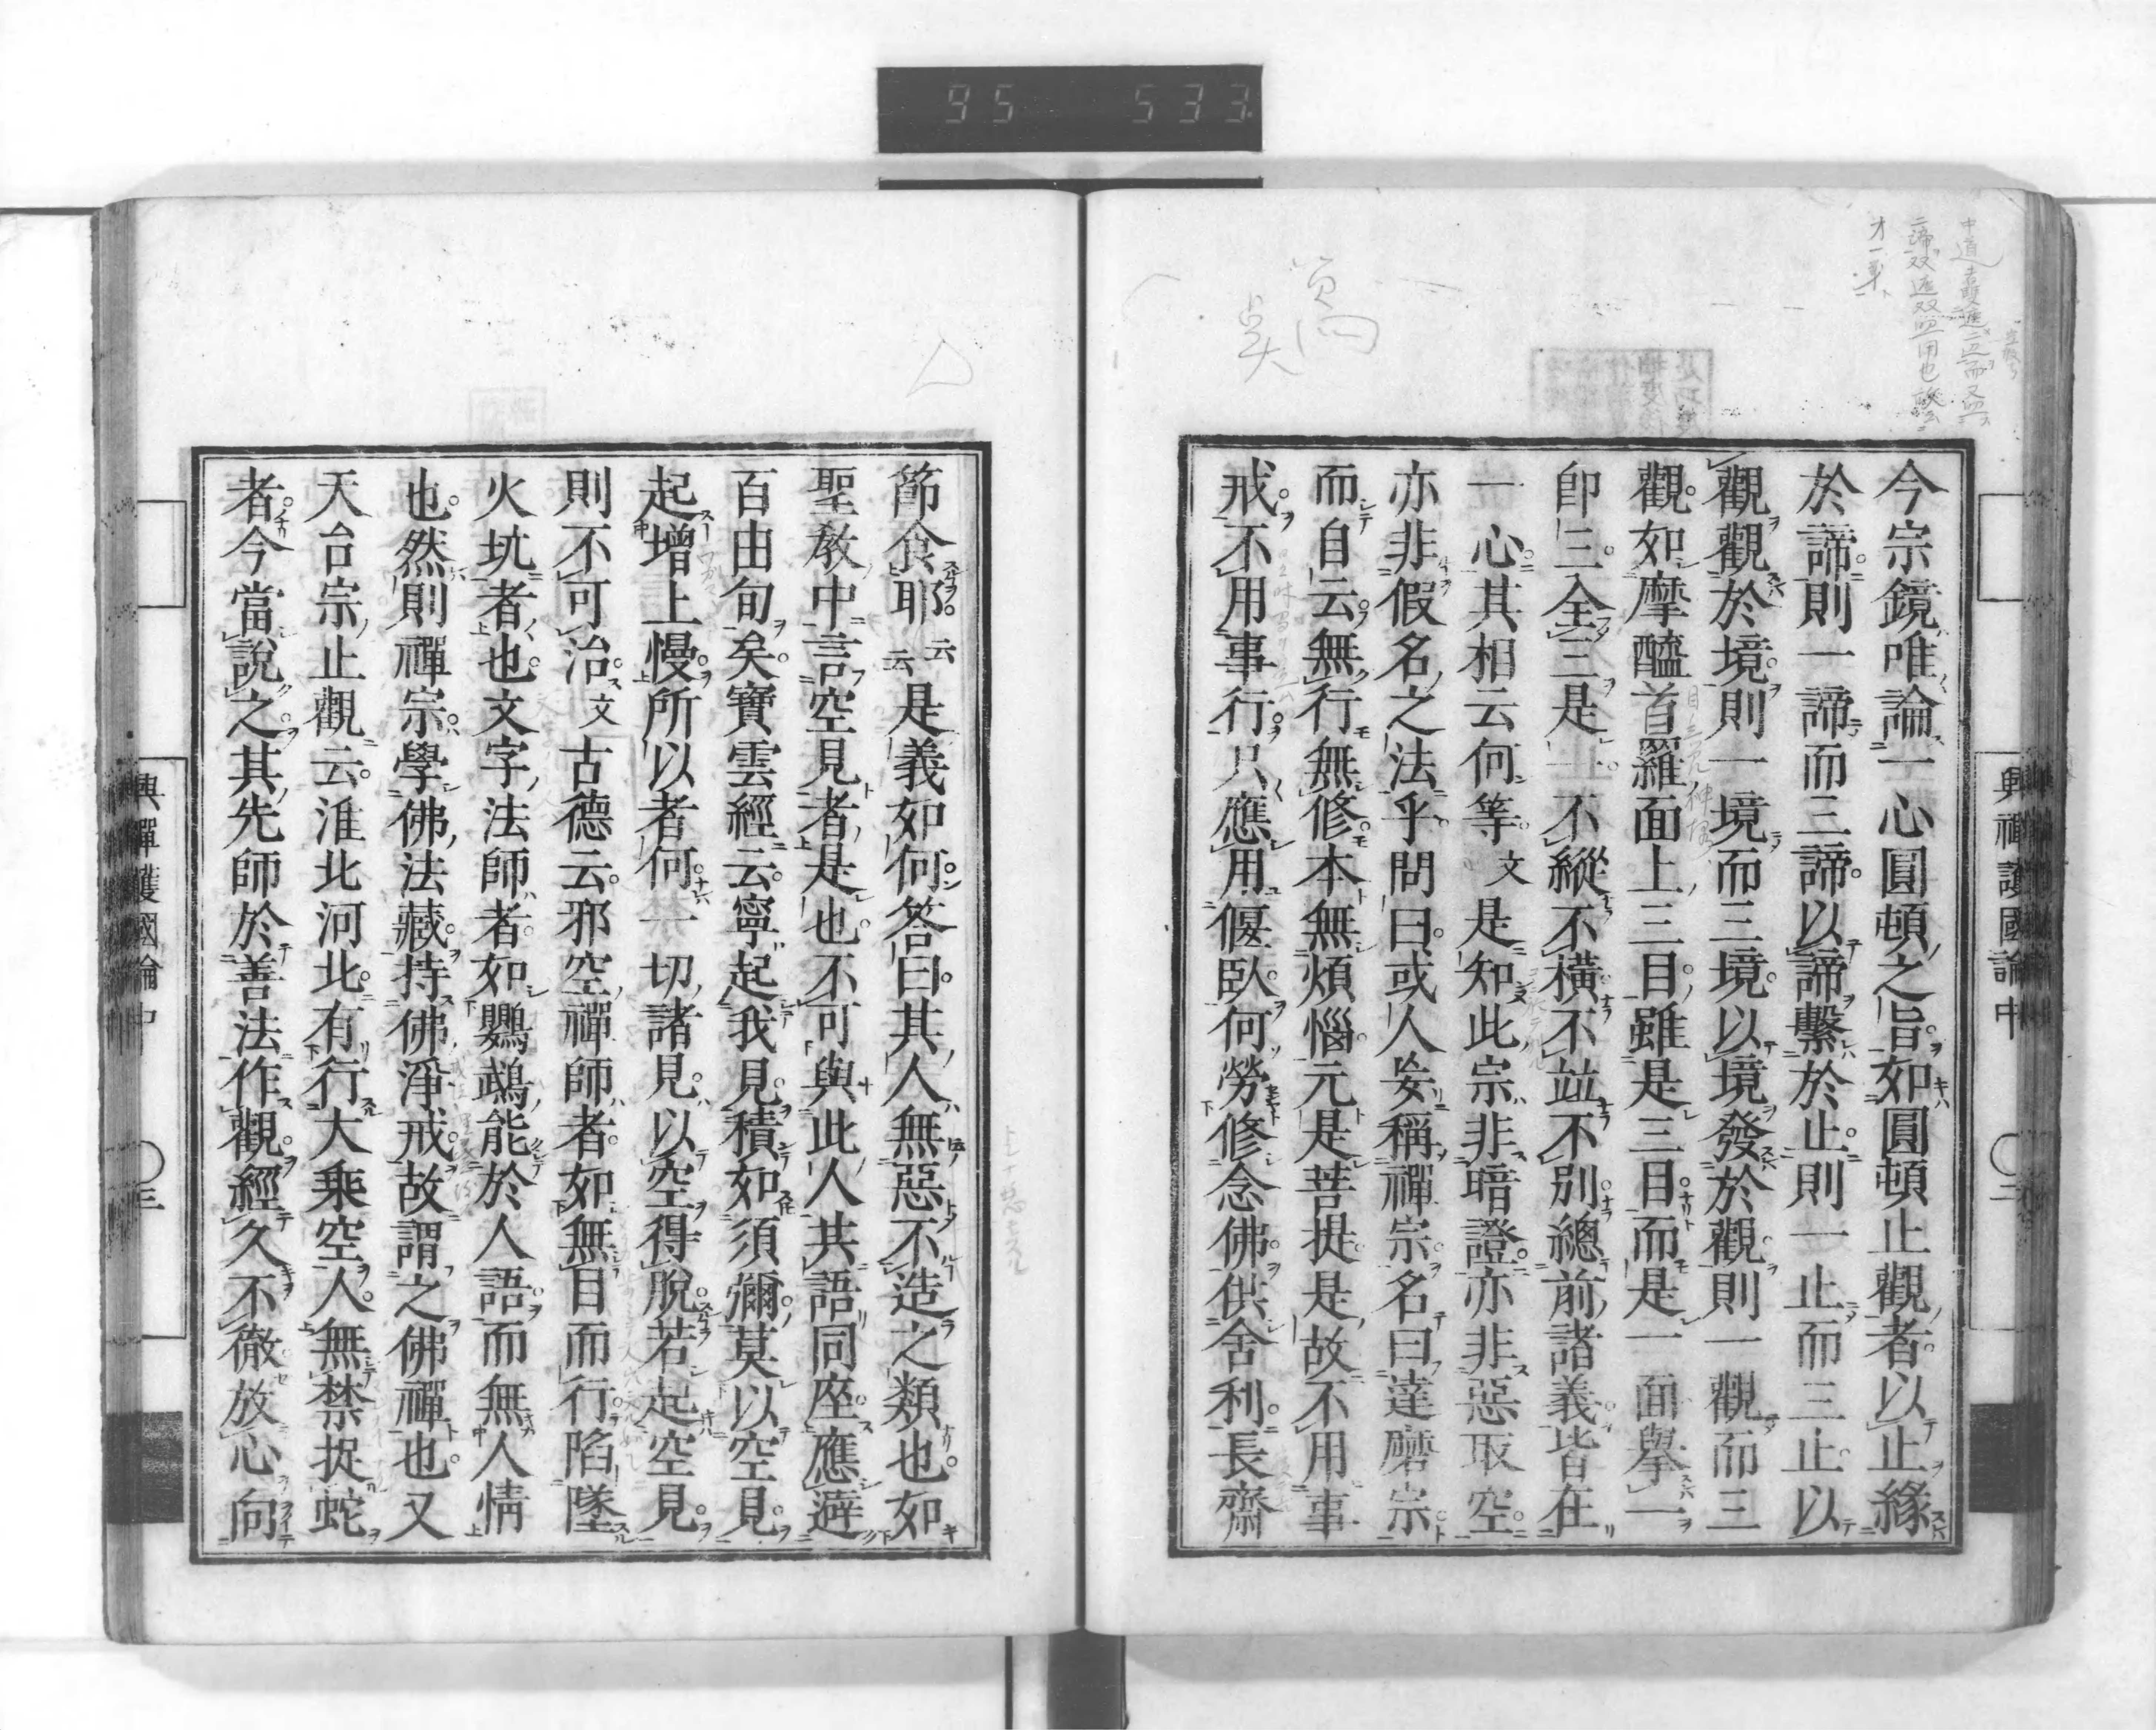 95 533
興禪護國論中 〇二
今宗鏡唯論一心圓頓之旨如圓頓止觀者以止緣
於諦則一諦而三諦以諦繫於止則一止而三止以
觀觀於境則一境而三境以境發於觀則一觀而三
觀如摩醯首羅面上三目雖是三目而是一面擧一
卽三全三是一不縱不橫不竝不別總前諸義皆在
一心其相云何等文是知此宗非暗證亦非惡取空
亦非假名之法乎問曰或人妄稱禪宗名曰達磨宗
而自云無行無修本無煩惱元是菩提是故不用事
戒不用事行只應用偃臥何勞修念佛供舍利長齋
節食耶云云是義如何答曰其人無惡不造之類也如
聖敎中言空見者是也不可與此人共語同座應避
百由旬矣寶雲經云寧起我見積如須彌莫以空見
起增上慢所以者何一切諸見以空得脫若起空見
則不可治文古德云邪空禪師者如無目而行陷墜
火坑者也文字法師者如鸚鵡能於人語而無人情
也然則禪宗學佛法藏持佛淨戒故謂之佛禪也又
天台宗止觀云淮北河北有行大乘空人無禁捉蛇
者今當說之其先師於善法作觀經久不徹放心向
興禪護國論中 〇三